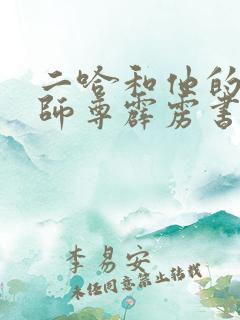 二哈和他的
师尊霹雳书
李易安
未经同意禁止转载